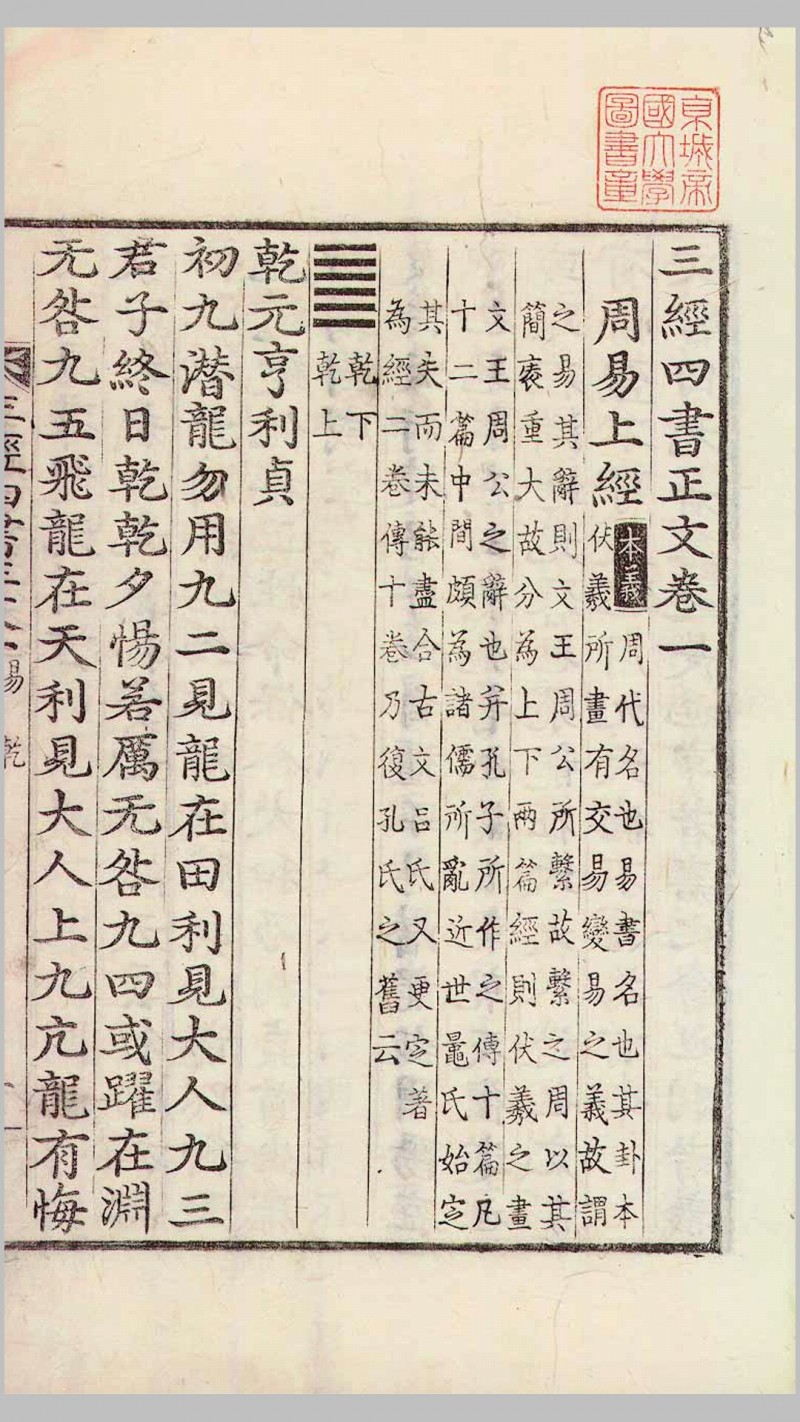 京城帝
國大學
圖書章
三經四書正文卷一
周易上經
本義
周代名也易書名也其卦本
伏羲所畫有交易變易之義故謂
之易其辭則文王周公所繫故繫之周以其
簡袠重大故分為上下兩篇經則伏羲之畫
文王周公之辭也并孔子所作之傳十篇凡
十二篇中間頗為諸儒所亂近世鼂氏始㝎
其失而未能盡合古文呂氏又更㝎著
為經二卷傳十卷乃復孔氏之舊云
乾下
乾上
乾元亨利貞
初九潛龍勿用九二見龍在田利見大人九三
君子終日乾乾夕惕若厲无咎九四或躍在淵
无咎九五飛龍在天利見大人上九亢龍有悔
易
乾